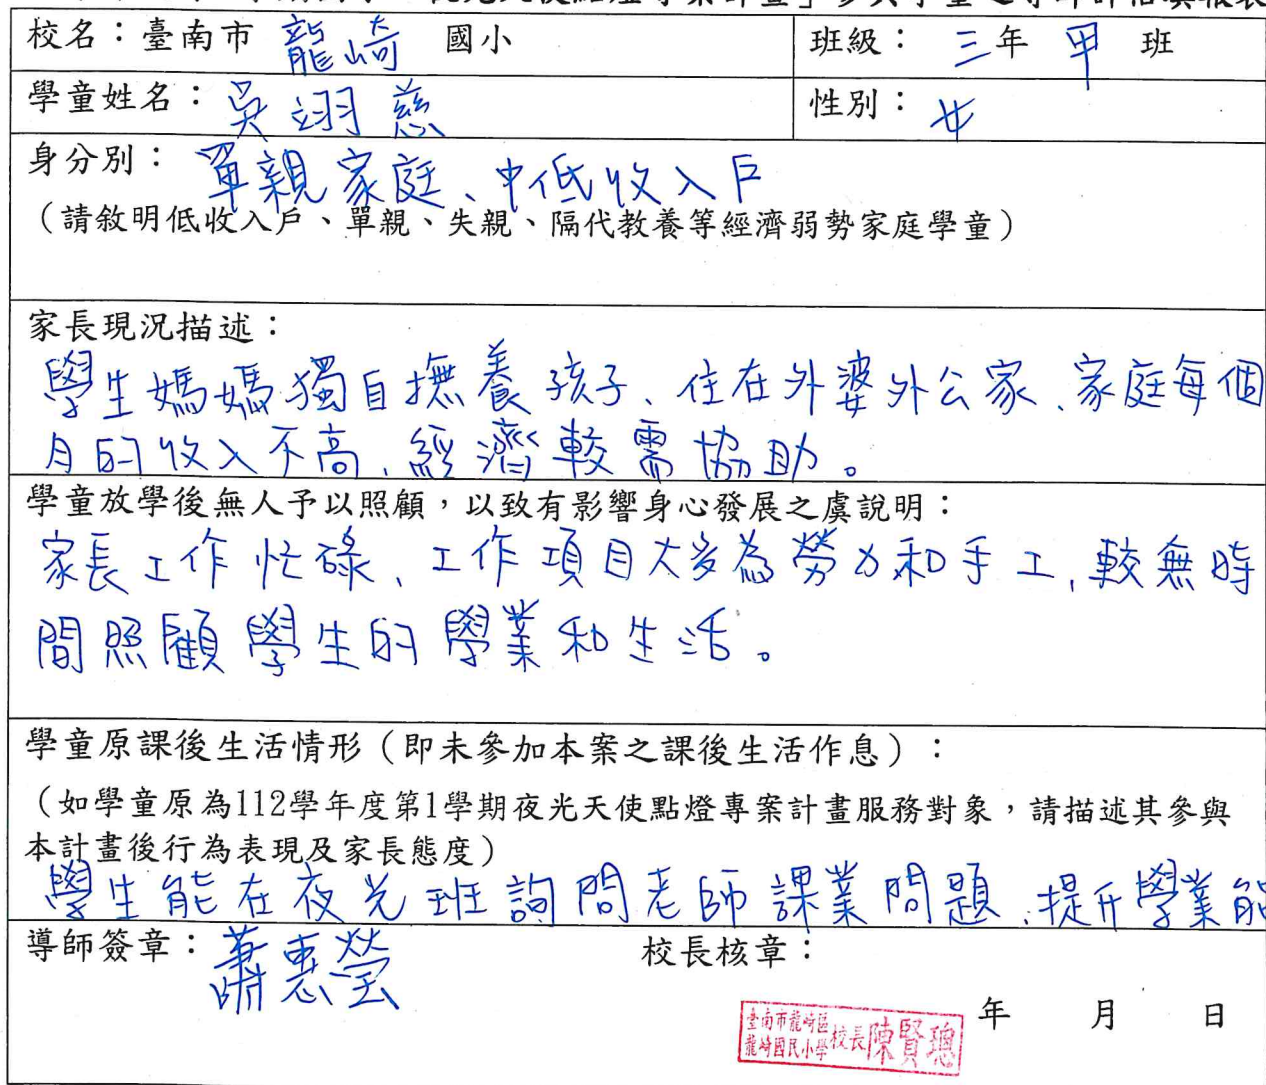 夜光天使點燈專案計畫」參與學童之導師評估填報表
校名：臺南市 龍崎 國小 班級：三年 甲 班
學童姓名：吳翊慈 性別：女
身分別：單親家庭、中低收入戶
（請敘明低收入戶、單親、失親、隔代教養等經濟弱勢家庭學童）
家長現況描述：
學生媽媽獨自撫養孩子、住在外婆外公家、家庭每個
月的收入不高、經濟較需協助。
學童放學後無人予以照顧，以致有影響身心發展之虞說明：
家長工作忙碌、工作項目大多為勞力和手工，較無時
間照顧學生的學業和生活。
學童原課後生活情形（即未參加本案之課後生活作息）：
（如學童原為112學年度第1學期夜光天使點燈專案計畫服務對象，請描述其參與
本計畫後行為表現及家長態度）
學生能在夜光班詢問老師課業問題、提升學業能
導師簽章：蕭惠瑩 校長核章：
年 月 日
臺南市龍崎區
龍崎國民小學 校長 陳賢聰